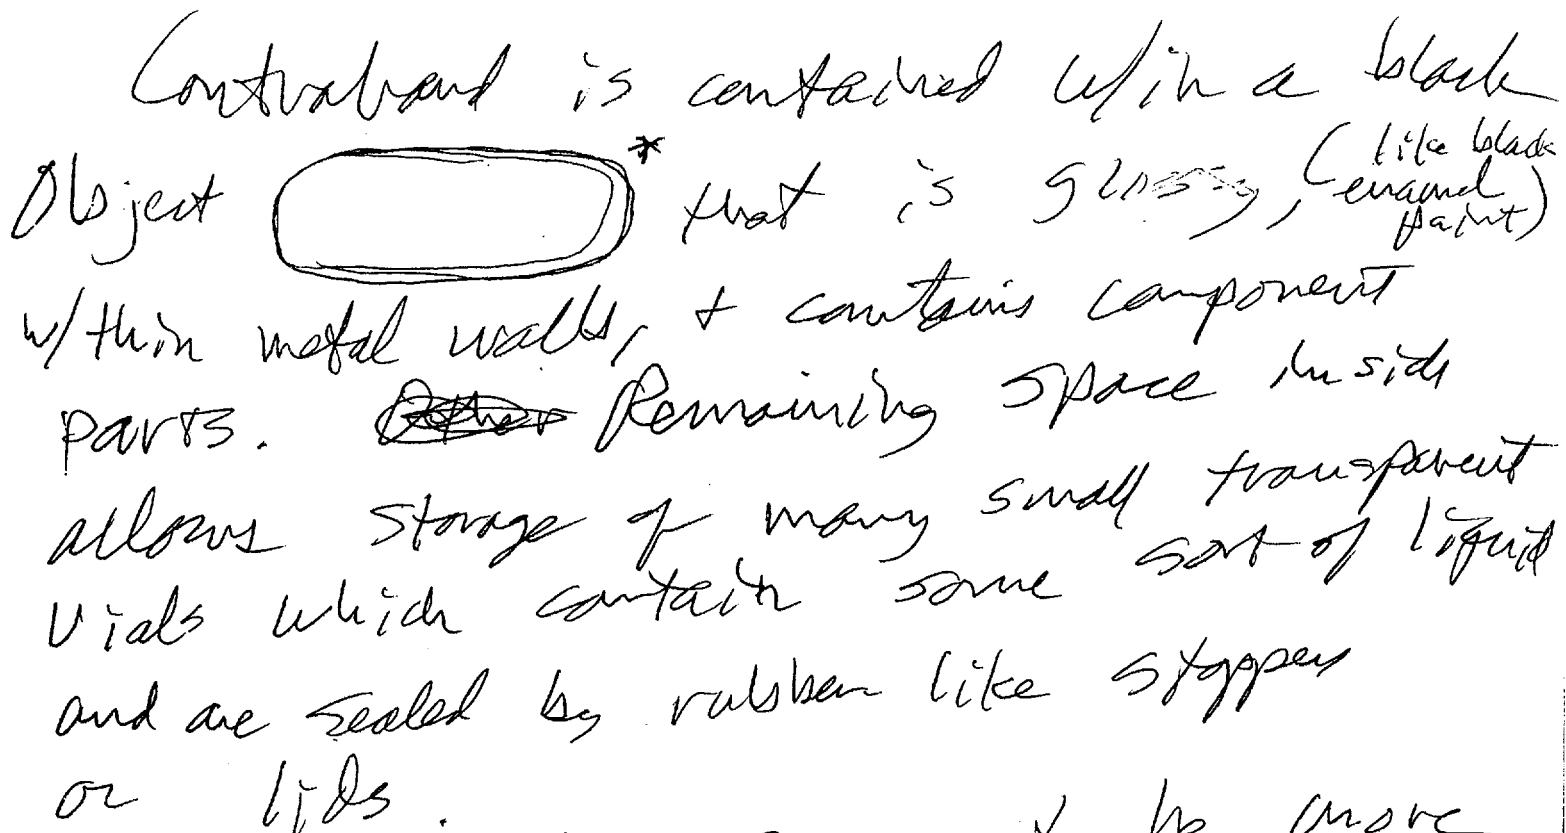 Contraband is contained w/in a black
Object * that is glossy, (like black
enamel
paint)
w/thin metal walls, + contains component
parts. Other Remaining space inside
allows storage of many small transparent
Vials which contain some sort of liquid
and are sealed by rubber like stoppers
or lids.
more